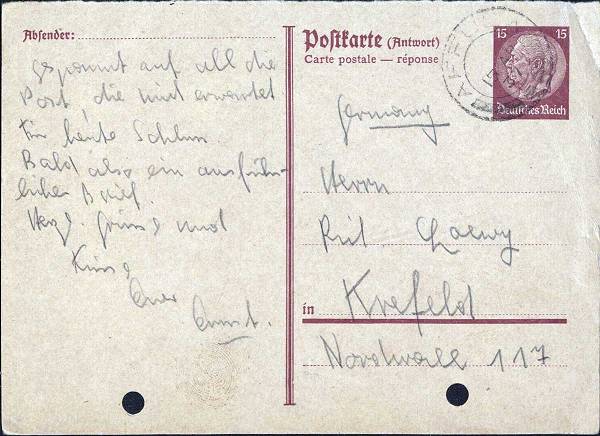 Absender:
gespannt auf all die
Post, die mich erwartet
Für heute Schluss.
Bald also ein ausführ-
licher Brief.
Herzl. Grüsse und
Küsse
Euer
Ernst.
Postkarte (Antwort)
Carte postale — réponse
15 15
Deutsches Reich
Germany
Herrn
Loewy
in Krefeld
Nordwall 117